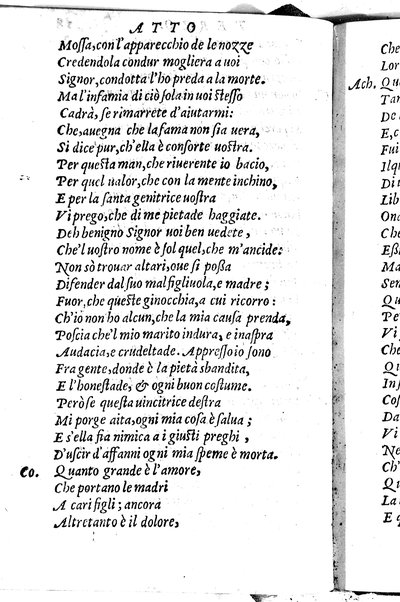 ATTO
Mossa, con l'apparecchio de le nozze
Credendola condur mogliera a uoi
Signor, condotta l'ho preda a la morte.
Ma l'infamia di ciò sola in uoi stesso
Cadrà, se rimarrete d'aiutarmi:
Che, auegna che la fama non sia uera,
Si dice pur, ch'ella è consorte uostra.
Per questa man, che riuerente io bacio,
Per quel ualor, che con la mente inchino,
E per la santa genitrice uostra
Vi prego, che di me pietade haggiate.
Deh benigno Signor uoi ben uedete,
Che'l uostro nome è sol quel, che m'ancide:
Non sò trouar altari, oue si possa
Difender dal suo mal figliuola, e madre;
Fuor, che queste ginocchia, a cui ricorro:
Ch'io non ho alcun, che la mia causa prenda,
Poscia che'l mio marito indura, e inaspra
Audacia, e crudeltade. Appresso io sono
Fra gente, donde è la pietà sbandita,
E l'honestade, & ogni buon costume.
Però se questa uincitrice destra
Mi porge aita, ogni mia cosa è salua;
E s'ella fia nimica a i giusti preghi,
D'uscir d'affanni ogni mia speme è morta.
Co. Quanto grande è l'amore,
Che portano le madri
A cari figli; ancora
Altretanto è il dolore,
Che
Lor
Ach. Qu
Tan
De
E
Fui
Il q
Di
Lib
On
Che
Ess
Ma
Sen
Qu
Pe
Vi
Che
Qu
Inf
Cos
Da
Vi
Ne
Ch
Qu
La
E q